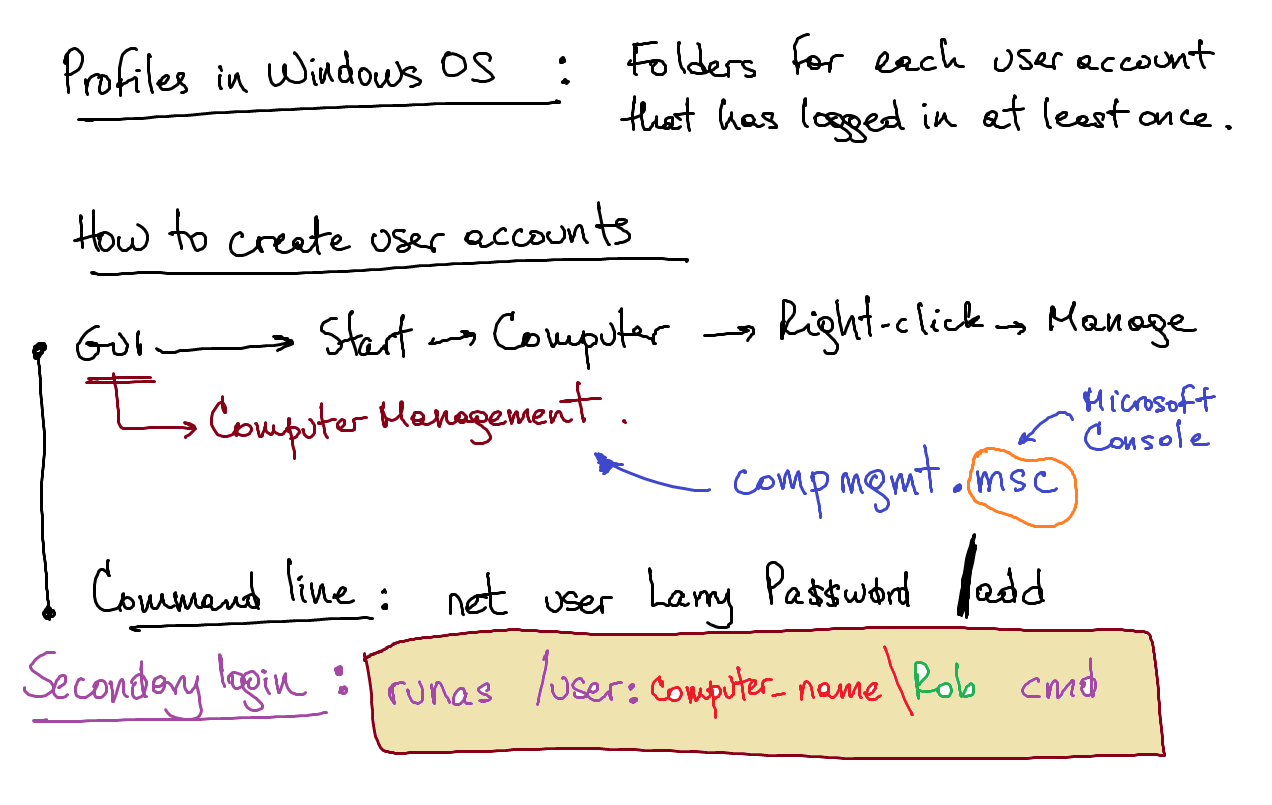 Profiles in Windows OS : Folders for each user account
that has logged in at least once.
How to create user accounts
GUI → Start → Computer → Right-click → Manage
→ Computer Management.
Microsoft
Console
compmgmt.msc
Command line : net user Larry Pa$$word /add
Secondary login : runas /user: Computer_name\Rob cmd